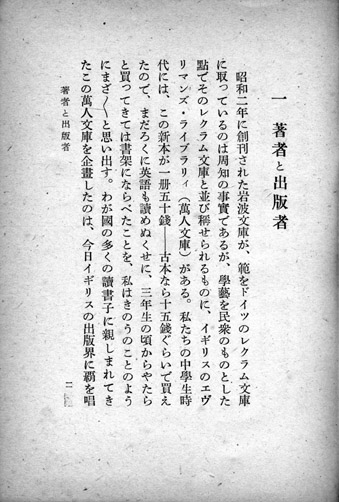 一 著者と出版者
昭和二年に創刊された岩波文庫が、範をドイツのレクラム文庫
に取っているのは周知の事實であるが、學藝を民衆のものとした
點でそのレクラム文庫と並び稱せられるものに、イギリスのエヴ
リマンズ・ライブラリィ(萬人文庫)がある。私たちの中學生時
代には、この新本が一册五十錢——古本なら十五錢ぐらいで買え
たので、まだろくに英語も讀めぬくせに、三年生の頃からやたら
と買ってきては書架にならべたことを、私はきのうのことのよう
にまざ〱と思い出す。わが國の多くの讀書子に親しまれてき
たこの萬人文庫を企畫したのは、今日イギリスの出版界に覇を唱
著者と出版者